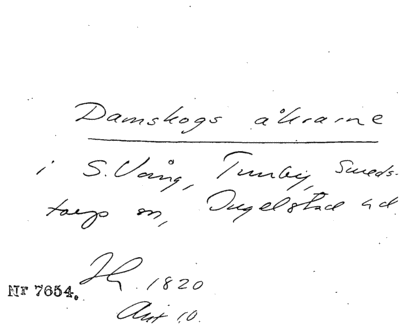 Damskogs åkrarne
i S. Vång, Tumby, Smeds-
torps sn, Ingelstad hd.
1820
Nr 7654.
Akt 10.